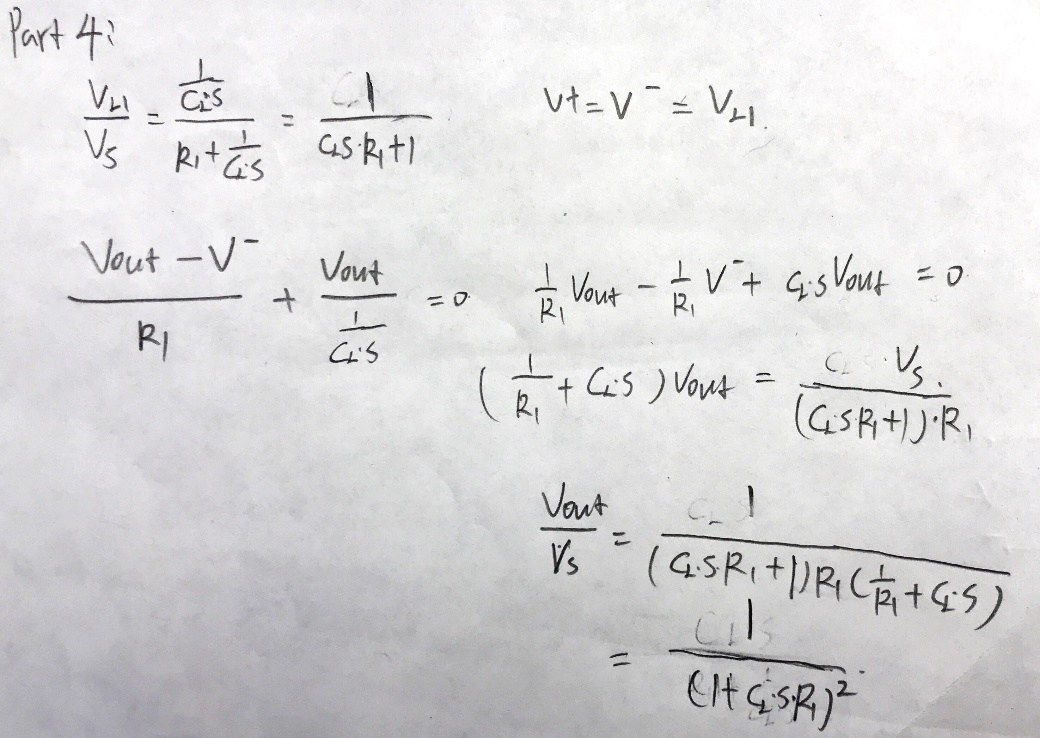 Part 4:
V_L1/V_S = (1/(C_L·S))/(R_1 + 1/(C_L·S)) = 1/(C_L S·R_1+1)    V+ = V^- = V_L1.
(Vout - V^-)/R_1 + Vout/(1/(C_L·S)) = 0    1/R_1 Vout - 1/R_1 V^- + C_L·S Vout = 0
(1/R_1 + C_L·S) Vout = V_S/((C_L·S R_1+1)·R_1)
Vout/V_S = 1/((C_L·S·R_1+1)R_1(1/R_1 + C_L·S))
= 1/(1+C_L·S·R_1)^2